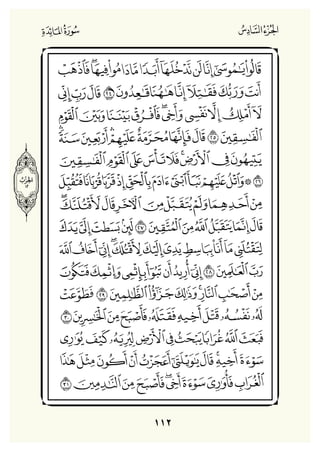 الجُزْءُ السَّادِسُ
سُورَةُ المَائِدَةِ
قَالُوا۟ يَٰمُوسَىٰٓ إِنَّا لَن نَّدْخُلَهَآ أَبَدًا مَّا دَامُوا۟ فِيهَا ۖ فَٱذْهَبْ
أَنتَ وَرَبُّكَ فَقَٰتِلَآ إِنَّا هَٰهُنَا قَٰعِدُونَ ٢٤ قَالَ رَبِّ إِنِّى
لَآ أَمْلِكُ إِلَّا نَفْسِى وَأَخِى ۖ فَٱفْرُقْ بَيْنَنَا وَبَيْنَ ٱلْقَوْمِ
ٱلْفَٰسِقِينَ ٢٥ قَالَ فَإِنَّهَا مُحَرَّمَةٌ عَلَيْهِمْ ۛ أَرْبَعِينَ سَنَةً ۛ
يَتِيهُونَ فِى ٱلْأَرْضِ ۚ فَلَا تَأْسَ عَلَى ٱلْقَوْمِ ٱلْفَٰسِقِينَ
٢٦ ۞ وَٱتْلُ عَلَيْهِمْ نَبَأَ ٱبْنَىْ ءَادَمَ بِٱلْحَقِّ إِذْ قَرَّبَا قُرْبَانًا فَتُقُبِّلَ
مِنْ أَحَدِهِمَا وَلَمْ يُتَقَبَّلْ مِنَ ٱلْءَاخَرِ قَالَ لَأَقْتُلَنَّكَ ۖ
قَالَ إِنَّمَا يَتَقَبَّلُ ٱللَّهُ مِنَ ٱلْمُتَّقِينَ ٢٧ لَئِنۢ بَسَطتَ إِلَىَّ يَدَكَ
لِتَقْتُلَنِى مَآ أَنَا۠ بِبَاسِطٍ يَدِىَ إِلَيْكَ لِأَقْتُلَكَ ۖ إِنِّىٓ أَخَافُ ٱللَّهَ
رَبَّ ٱلْعَٰلَمِينَ ٢٨ إِنِّىٓ أُرِيدُ أَن تَبُوٓأَ بِإِثْمِى وَإِثْمِكَ فَتَكُونَ
مِنْ أَصْحَٰبِ ٱلنَّارِ ۚ وَذَٰلِكَ جَزَٰٓؤُا۟ ٱلظَّٰلِمِينَ ٢٩ فَطَوَّعَتْ
لَهُۥ نَفْسُهُۥ قَتْلَ أَخِيهِ فَقَتَلَهُۥ فَأَصْبَحَ مِنَ ٱلْخَٰسِرِينَ ٣٠
فَبَعَثَ ٱللَّهُ غُرَابًا يَبْحَثُ فِى ٱلْأَرْضِ لِيُرِيَهُۥ كَيْفَ يُوَٰرِى
سَوْءَةَ أَخِيهِ ۚ قَالَ يَٰوَيْلَتَىٰٓ أَعَجَزْتُ أَنْ أَكُونَ مِثْلَ هَٰذَا
ٱلْغُرَابِ فَأُوَٰرِىَ سَوْءَةَ أَخِى ۖ فَأَصْبَحَ مِنَ ٱلنَّٰدِمِينَ ٣١
١١٢